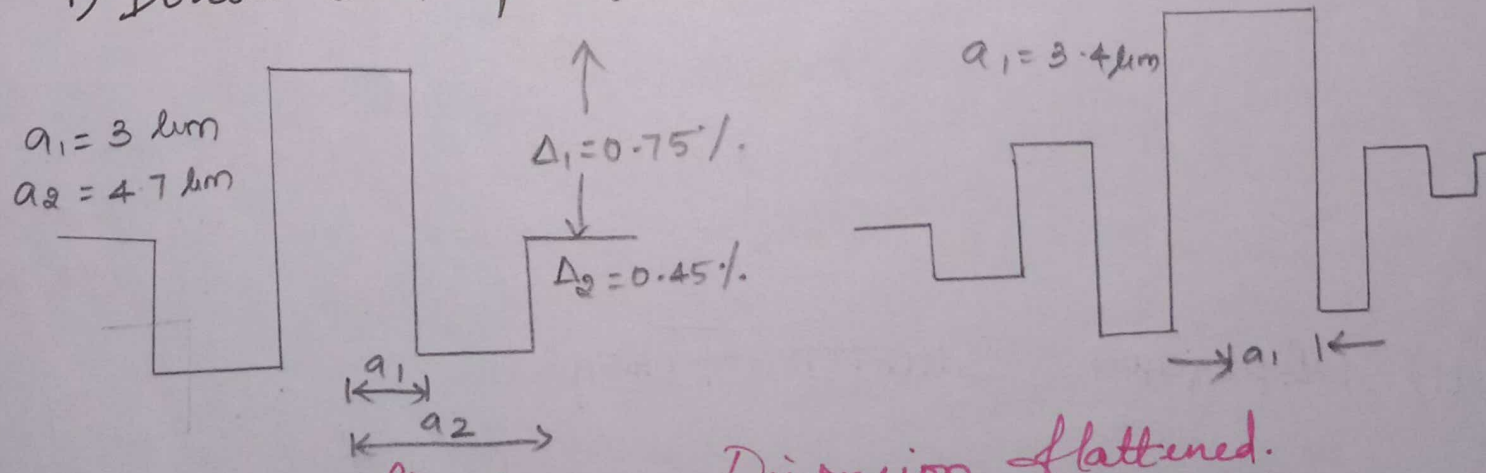 a₁ = 3 μm
a2 = 4.7 μm
Δ₁ = 0.75%.
Δ2 = 0.45%.
a₁
a2
a₁ = 3.4 μm
a₁
flattened.